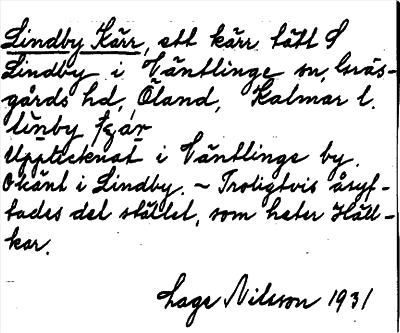 Lindby Kärr, ett kärr tätt S
Lindby i Väntlinge sn, Gräs-
gårds hd, Öland, Kalmar l.
linby kjär
Upptecknat i Väntlinge by.
Okänt i Lindby. – Troligtvis åsyf-
tades det stället, som heter Häll-
kar.
Lage Nilsson 1931